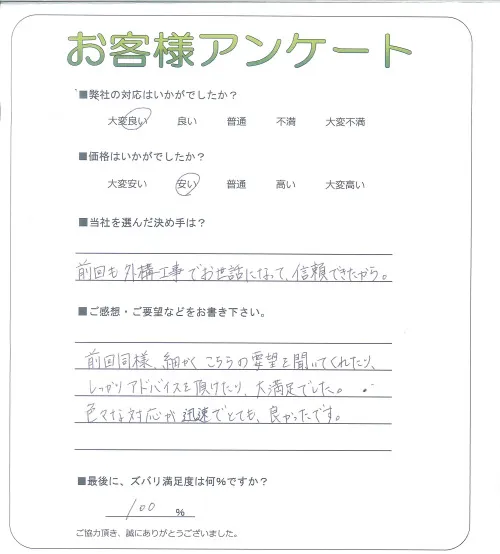 お客様アンケート
■弊社の対応はいかがでしたか？
大変良い 良い 普通 不満 大変不満
■価格はいかがでしたか？
大変安い 安い 普通 高い 大変高い
■当社を選んだ決め手は？
前回も外構工事でお世話になって、信頼できたから。
■ご感想・ご要望などをお書き下さい。
前回同様、細かくこちらの要望を聞いてくれたり、
しっかりアドバイスを頂けたり、大満足でした。
色々な対応が迅速でとても、良かったです。
■最後に、ズバリ満足度は何%ですか？
100 %
ご協力頂き、誠にありがとうございました。